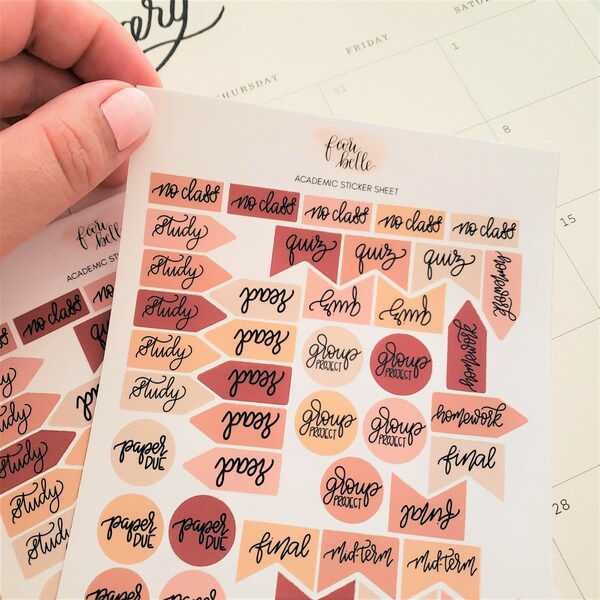 THURSDAY
FRIDAY
31
1
8
15
28
fox
belle
ACADEMIC STICKER SHEET
no class no class no class no class no class
study
quiz quiz quiz
homework
study
read
quiz quiz
study
read
group
PROJECT
group
PROJECT
homework
study
read
study
read
group
PROJECT
group
PROJECT
homework
paper
DUE
read
final
group
PROJECT
final
paper
DUE
paper
DUE
final midterm midterm
ACADEMIC
no class
study
study